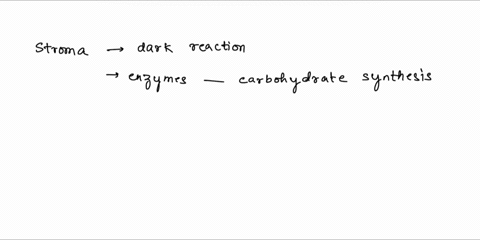 Stroma → dark reaction
→ enzymes — carbohydrate synthesis